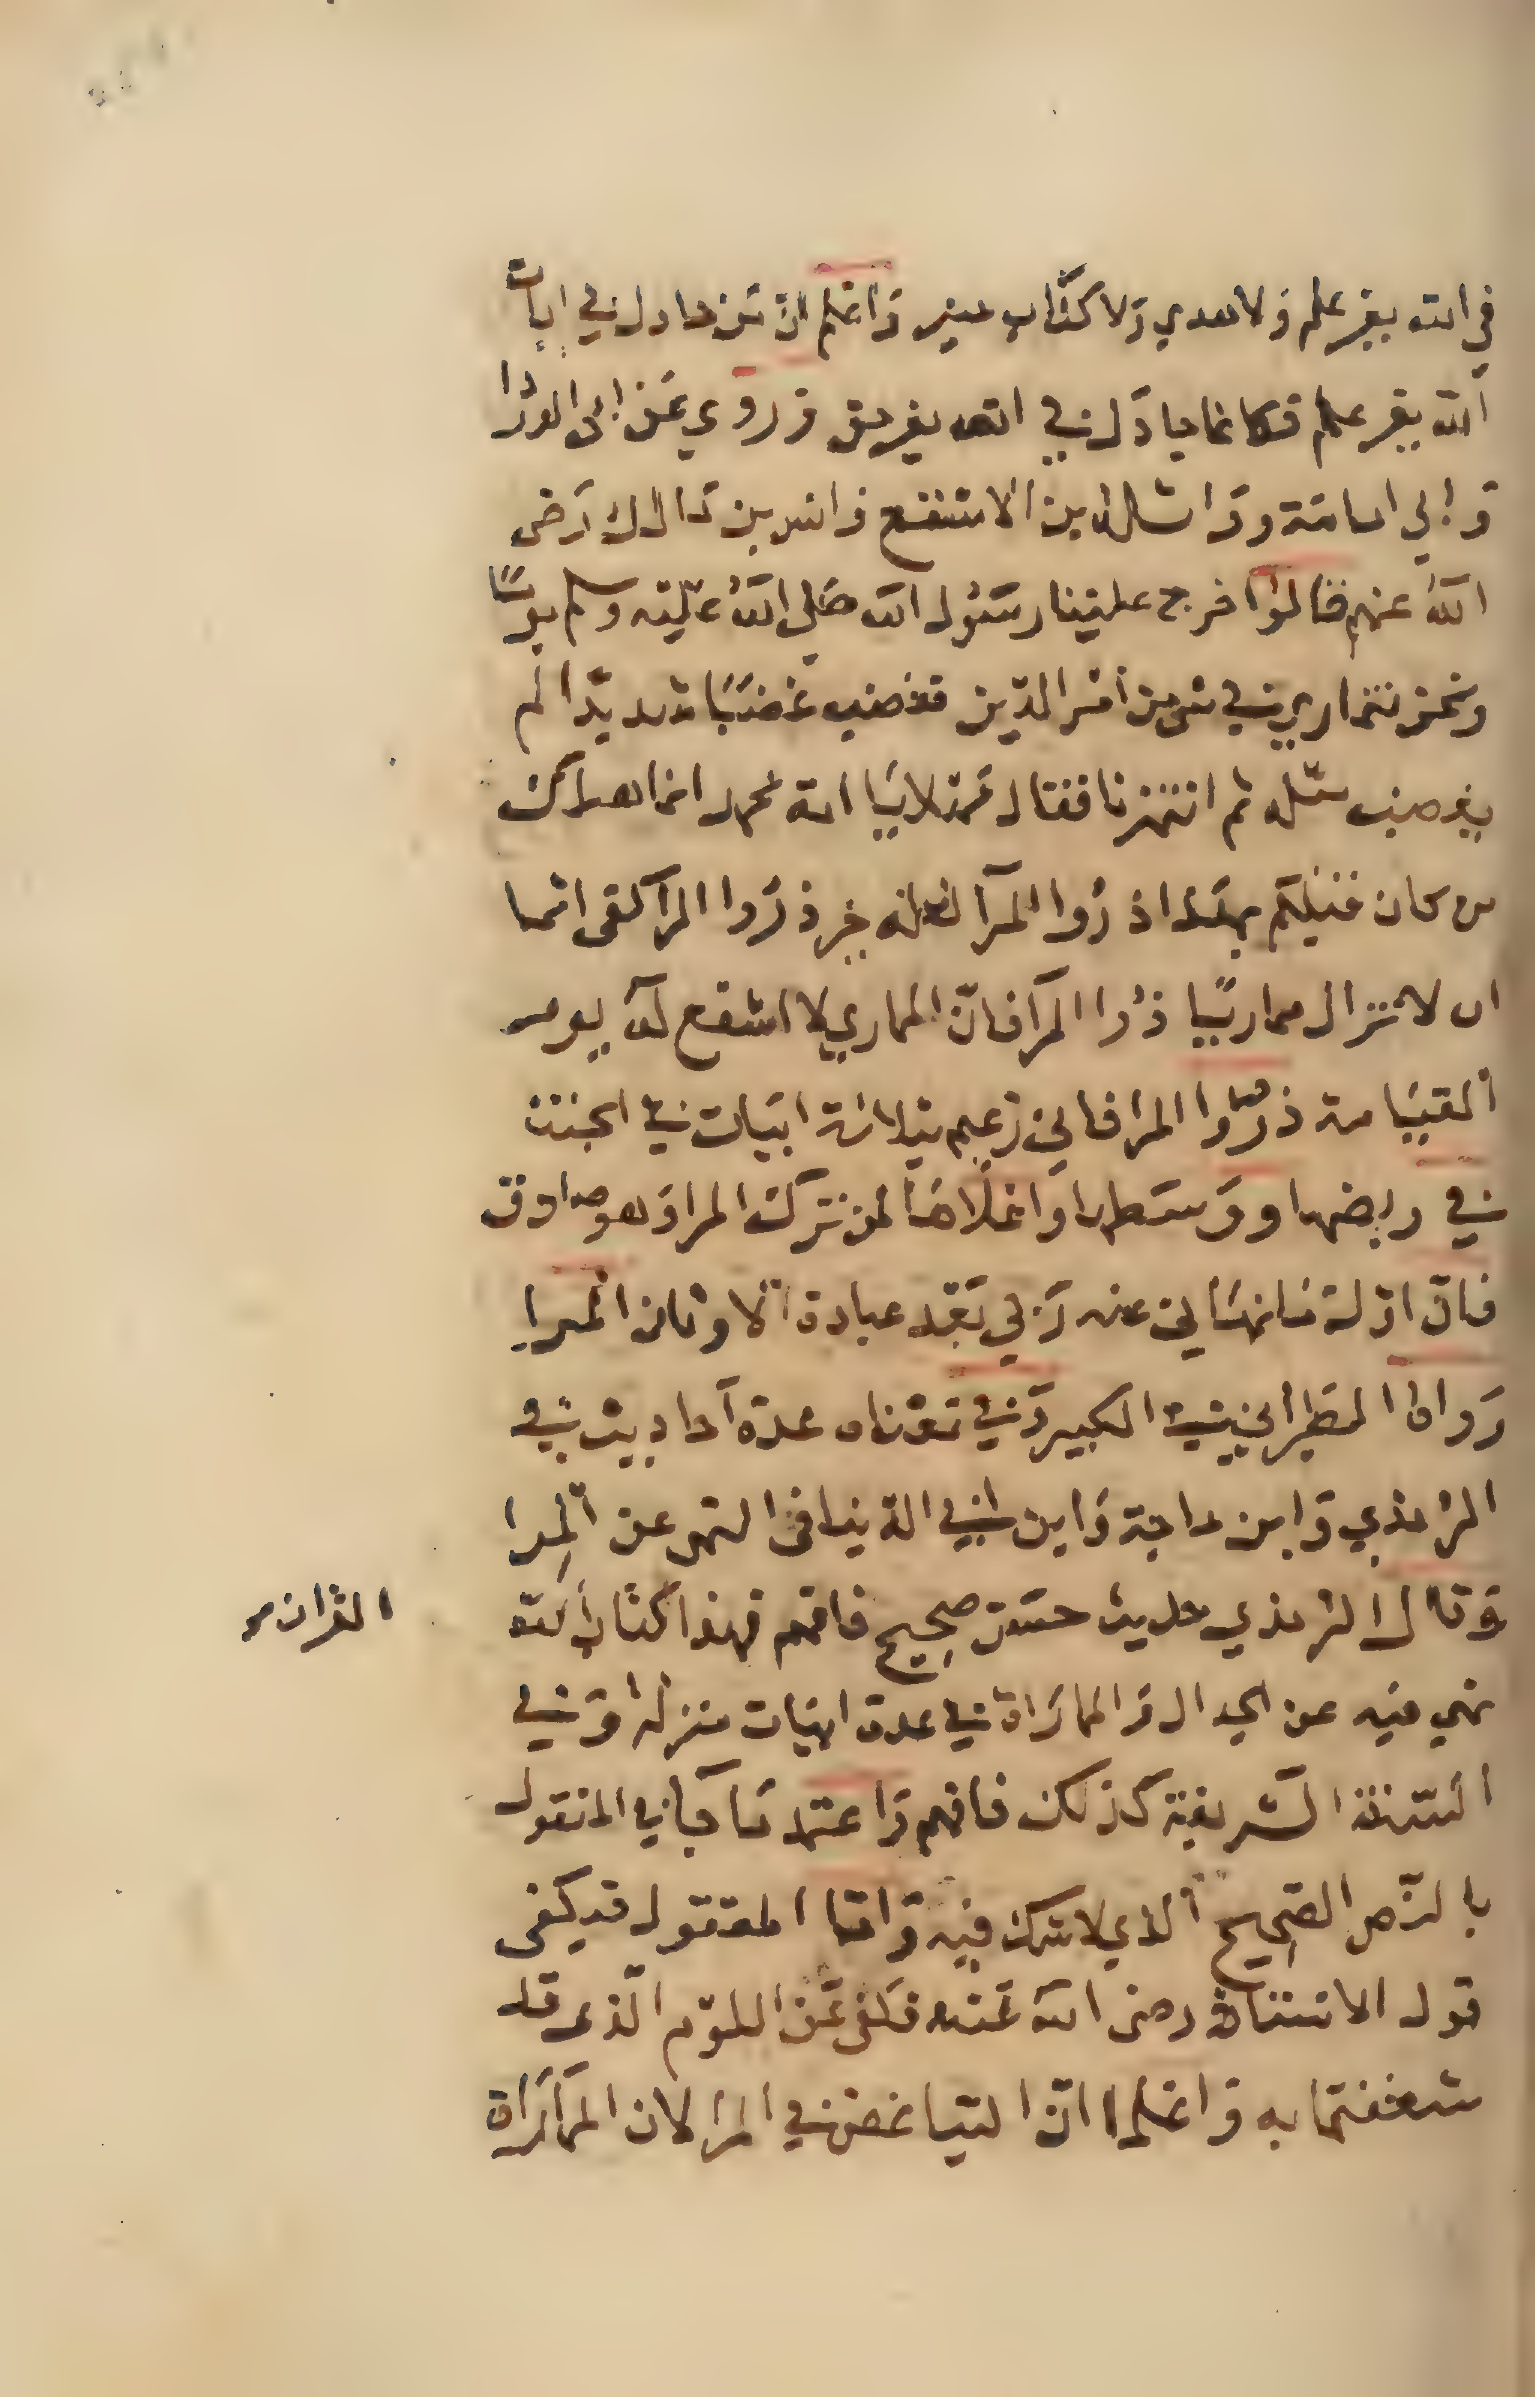 في الله بغير علم ولا هدي ولا كتاب منير وَاعلم انّ مَن جادل في ايات
الله بغير علم فكانما جادَل في الله بغير حق وروي عَن ابي الدردا
وَابي امامَة ووَاثلة بن الاسقع وانس بن مَالك رَضى
اللهُ عنهم قالوا خرج علينا رسَول الله صَلى اللهُ عَليه وسلم يومًا
ونحن نتماري في شى من امر الدّين فغضب غضبًا شديدًا لم
يغضب مثله ثم انتهرنا فقال مَهلا يَا امة محمد انما هلك
من كان قبلكم بهَذا ذرُوا المرَا لقلة خيره ذرَوا المرَا كفى اثما
ان لا تزال مماريًا ذرُوا المرَا فانّ المماري لا اشفع لهُ يوم
القيَامة ذرُوا المرَا فاني زعيم بثلاثة ابيَات في الجنة
في رياضها ووَسَطها وَاعلَاهَا لمن ترك المرا وَهو صادق
فانّ اوّل مَا نهَاني عنه رَبي بَعْد عبادة الاوثان المرا
رَواه الطبرَاني في الكبير وَفي مَعْناه عدة اَحاديث في
الترمذي وَابن ماجة وَابن ابي الدّنيا في النهي عن المِرا
وَقال الترمذي حديث حسَن صحِيح فافهم فهذا كتاب الله
القران
نهي فيه عن الجدال وَالممارَاة في عدة ايَات منزلة وَفي
السّنة الشريفة كَذلك فافهم وَاعتمد مَا جَا في المنقول
بالنّص الصّحِيح الذي لا شك فيه وَامّا المعقول فيكفي
قول الاستاذ رضى الله عَنه فكفى عَن اللوم الّذي قد
شغفتما به وَاعلما انّ التباغض في المرَا لان الممَارَاة